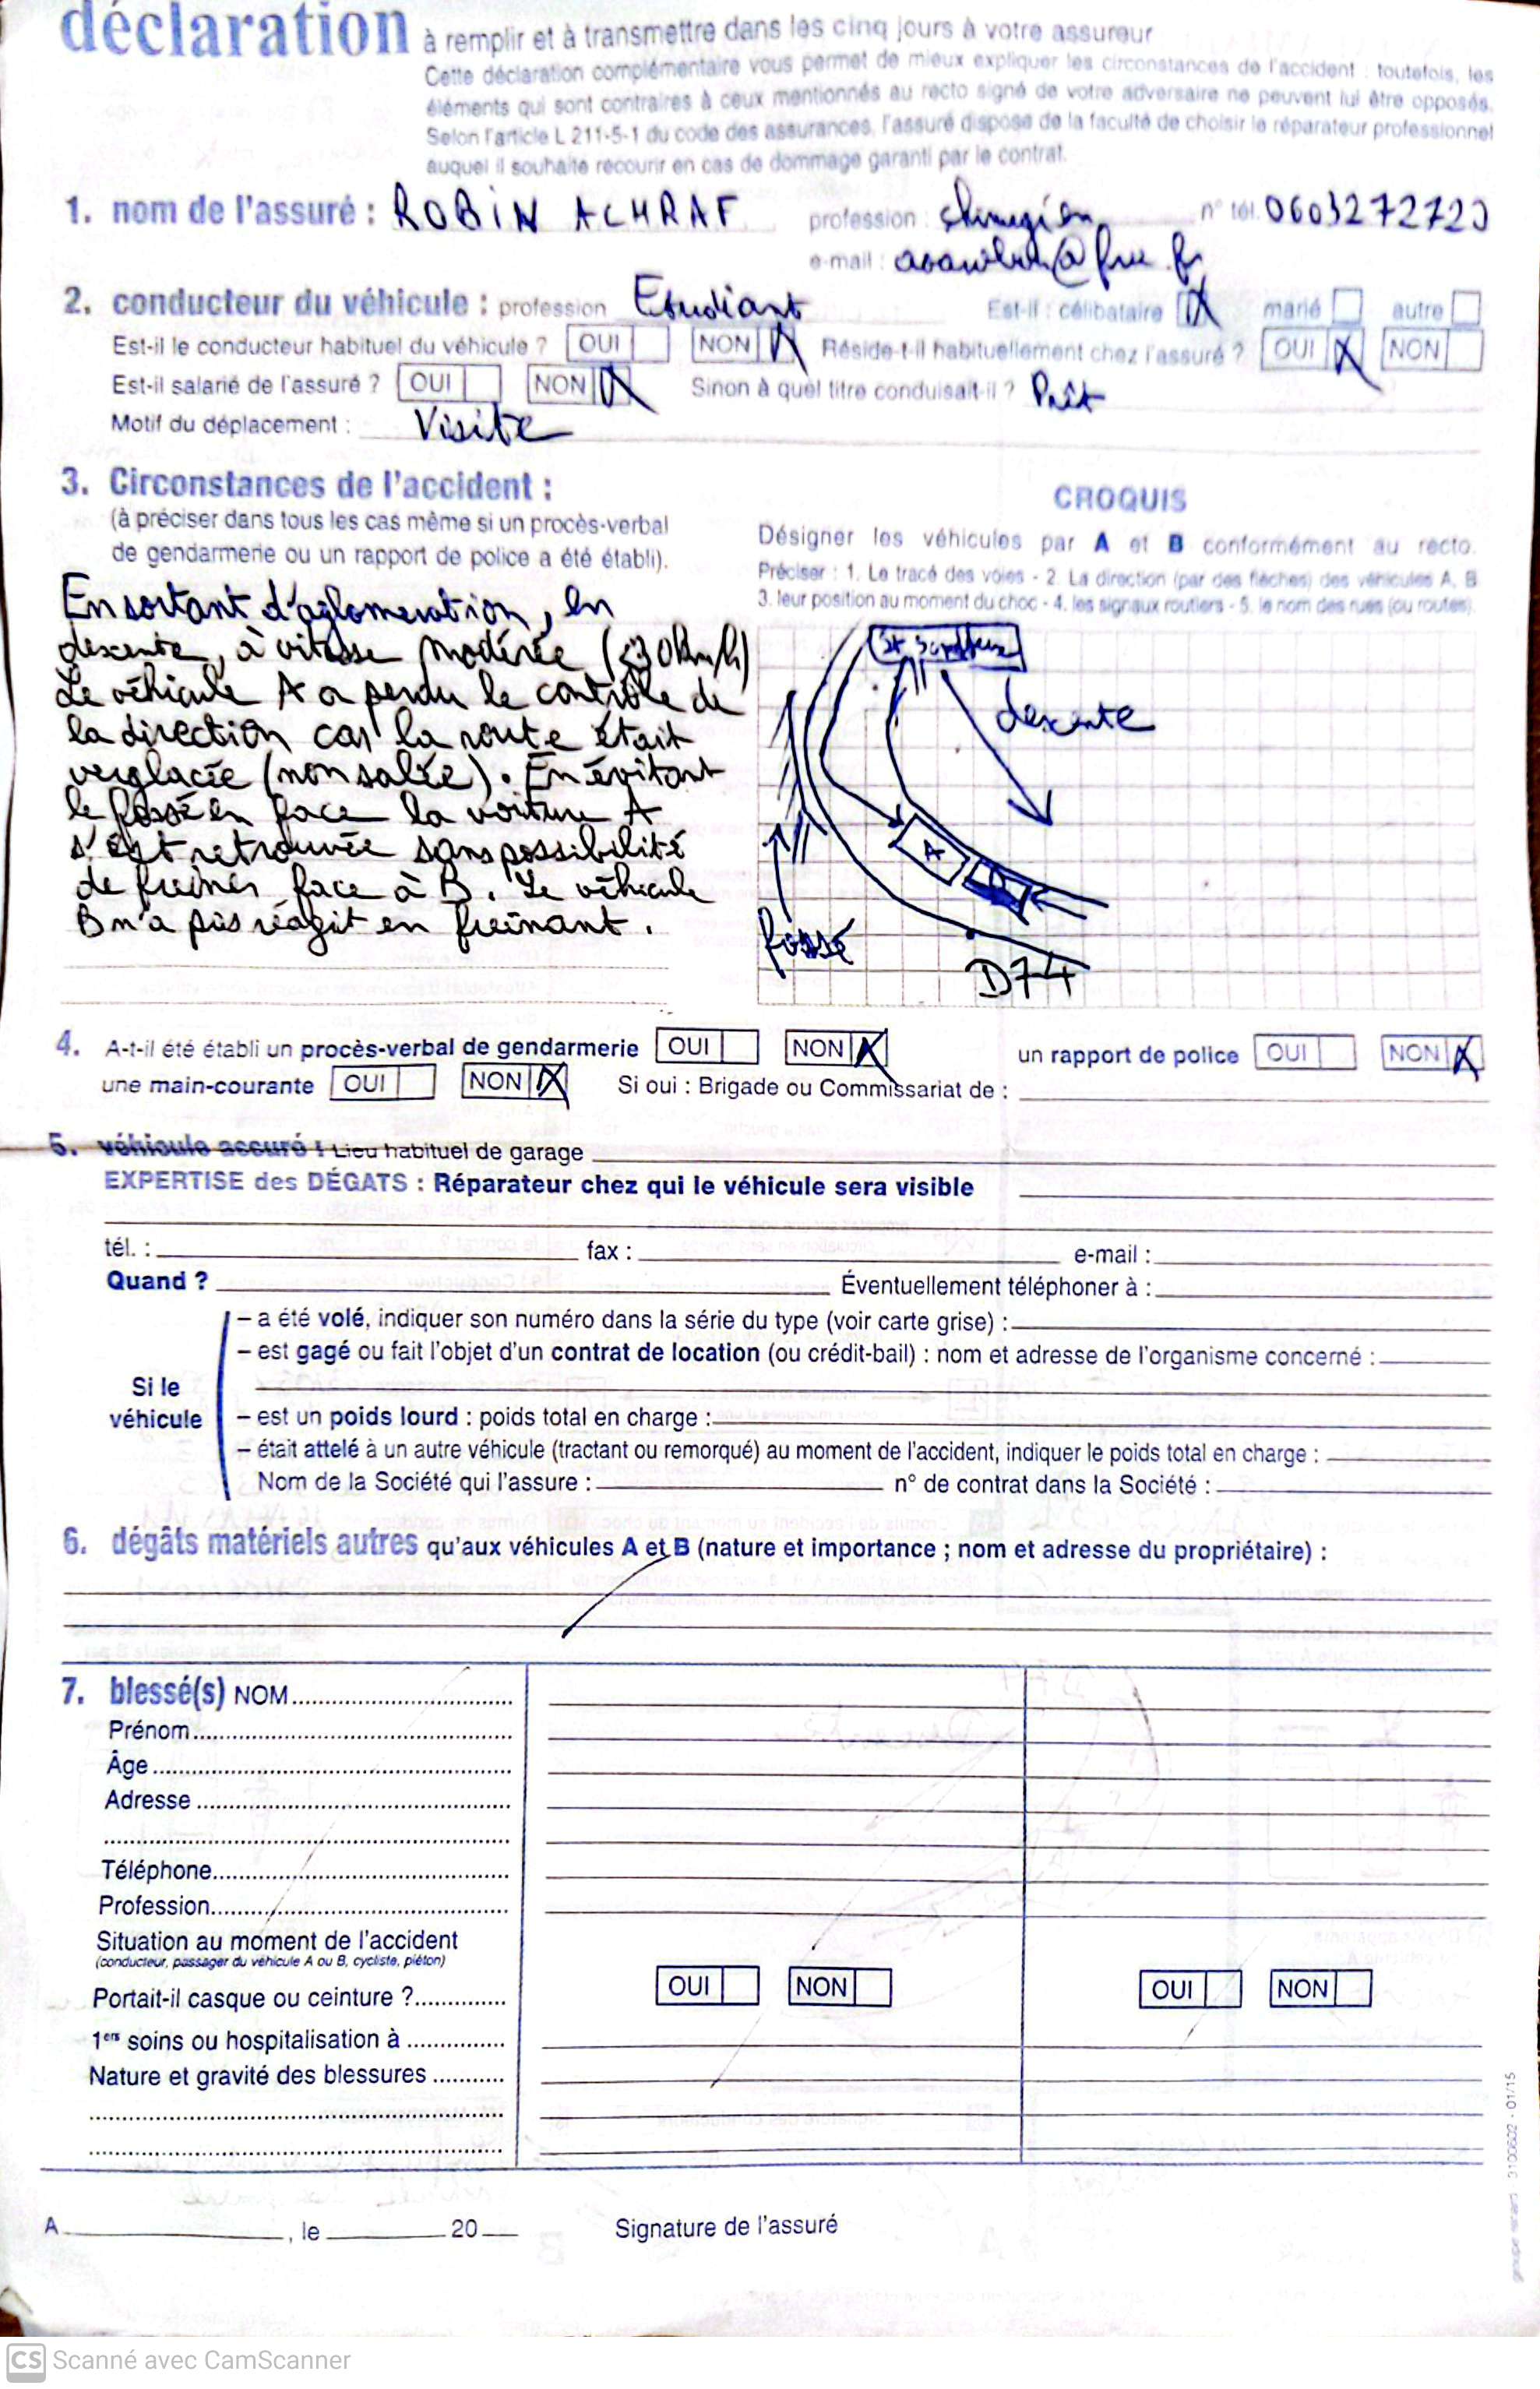 déclaration à remplir et à transmettre dans les cinq jours à votre assureur
Cette déclaration complémentaire vous permet de mieux expliquer les circonstances de l'accident : toutefois, les
éléments qui sont contraires à ceux mentionnés au recto signé de votre adversaire ne peuvent lui être opposés.
Selon l'article L 211-5-1 du code des assurances, l'assuré dispose de la faculté de choisir le réparateur professionnel
auquel il souhaite recourir en cas de dommage garanti par le contrat.
1. nom de l'assuré : ROBIN ACHRAF profession : n° tél. 0603272720
e-mail : @free.fr
2. conducteur du véhicule : profession Etudiant Est-il : célibataire X marié autre
Est-il le conducteur habituel du véhicule ? OUI NON X Réside-t-il habituellement chez l'assuré ? OUI X NON
Est-il salarié de l'assuré ? OUI NON X Sinon à quel titre conduisait-il ? Prêt
Motif du déplacement : Visite
3. Circonstances de l'accident :
(à préciser dans tous les cas même si un procès-verbal
de gendarmerie ou un rapport de police a été établi).
En sortant d'aglomeration, en
descente, à vitesse modérée (≤30km/h)
Le véhicule A a perdu le contrôle de
la direction car la route était
verglacée (non salée). En évitant
le fossé en face la voiture A
s'est retrouvée sans possibilité
de freiner face à B. Le véhicule
B n'a pas réagit en freinant.
CROQUIS
Désigner les véhicules par A et B conformément au recto.
Préciser : 1. Le tracé des voies - 2. La direction (par des flèches) des véhicules A, B
3. leur position au moment du choc - 4. les signaux routiers - 5. le nom des rues (ou routes).
descente
A
B
fossé
D74
4. A-t-il été établi un procès-verbal de gendarmerie OUI NON X un rapport de police OUI NON X
une main-courante OUI NON X Si oui : Brigade ou Commissariat de :
5. véhicule assuré : Lieu habituel de garage
EXPERTISE des DÉGATS : Réparateur chez qui le véhicule sera visible
tél. : fax : e-mail :
Quand ? Éventuellement téléphoner à :
Si le véhicule
– a été volé, indiquer son numéro dans la série du type (voir carte grise) :
– est gagé ou fait l'objet d'un contrat de location (ou crédit-bail) : nom et adresse de l'organisme concerné :
– est un poids lourd : poids total en charge :
– était attelé à un autre véhicule (tractant ou remorqué) au moment de l'accident, indiquer le poids total en charge :
Nom de la Société qui l'assure : n° de contrat dans la Société :
6. dégâts matériels autres qu'aux véhicules A et B (nature et importance ; nom et adresse du propriétaire) :
7. blessé(s) NOM
Prénom
Âge
Adresse
Téléphone
Profession
Situation au moment de l'accident
(conducteur, passager du véhicule A ou B, cycliste, piéton)
Portait-il casque ou ceinture ? OUI NON OUI NON
1ers soins ou hospitalisation à
Nature et gravité des blessures
A , le 20 Signature de l'assuré
3100602 - 01/15
CS Scanné avec CamScanner